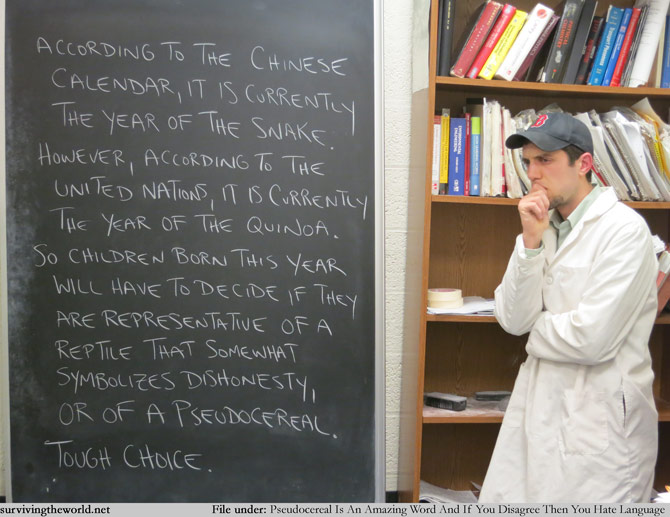 ACCORDING TO THE CHINESE
CALENDAR, IT IS CURRENTLY
THE YEAR OF THE SNAKE.
HOWEVER, ACCORDING TO THE
UNITED NATIONS, IT IS CURRENTLY
THE YEAR OF THE QUINOA.
SO CHILDREN BORN THIS YEAR
WILL HAVE TO DECIDE IF THEY
ARE REPRESENTATIVE OF A
REPTILE THAT SOMEWHAT
SYMBOLIZES DISHONESTY,
OR OF A PSEUDOCEREAL.
TOUGH CHOICE.
survivingtheworld.net
File under: Pseudocereal Is An Amazing Word And If You Disagree Then You Hate Language